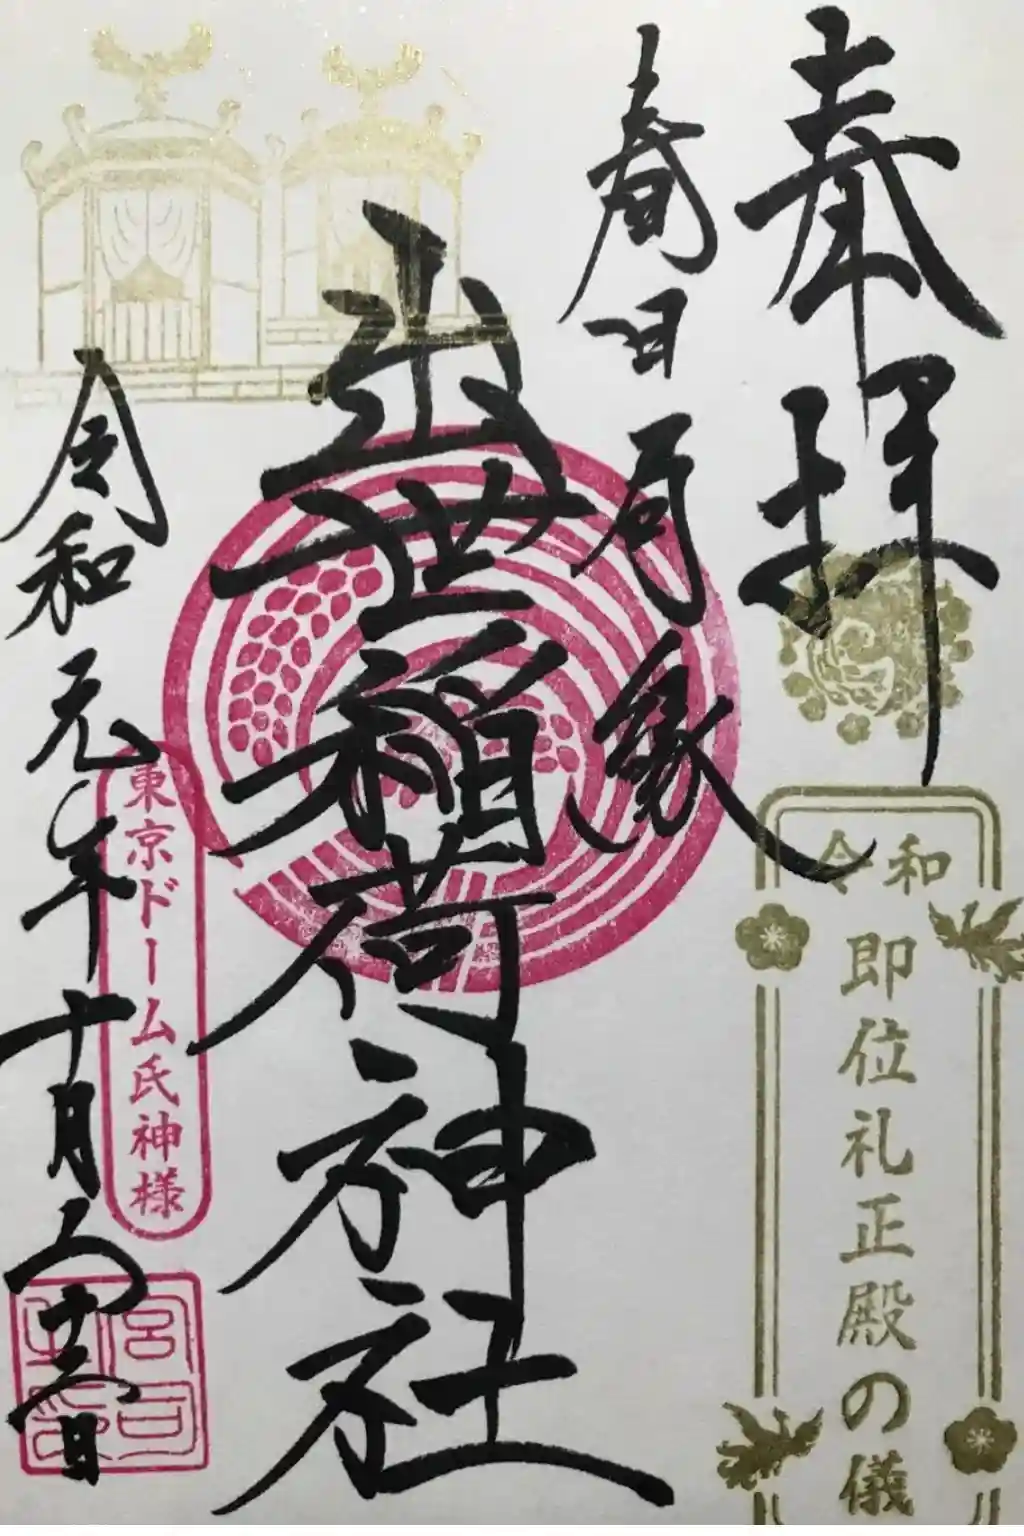 奉拝
春日局縁
出世稲荷神社
令和元年十月二十二日
東京ドーム氏神様
令和
即位礼正殿の儀
宮司